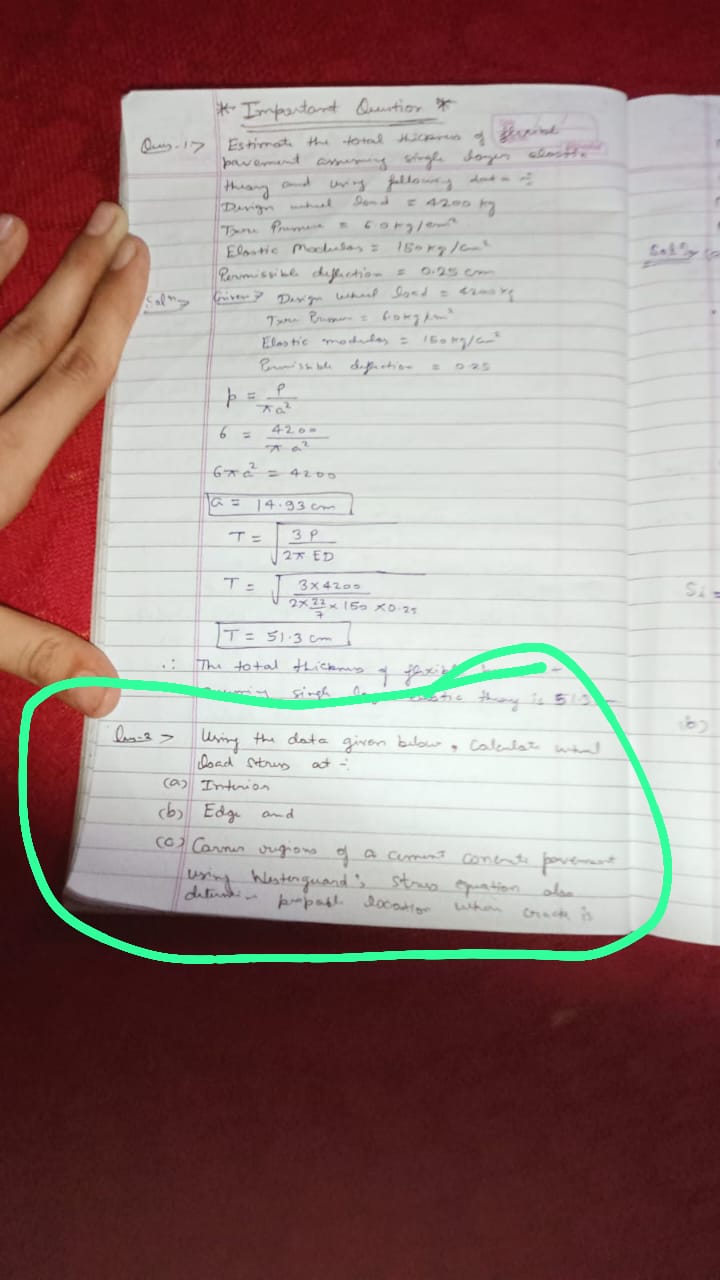 * Important Question *
Ques.1> Estimate the total thickness of flexible
pavement assuming single layer elastic
theory and using following data :-
Design wheel load = 4200 kg
Tyre Pressure = 6.0 kg/cm²
Elastic Modulus = 150 kg/cm²
Permissible deflection = 0.25 cm
Solⁿ> Given> Design wheel load = 4200 kg
Tyre Pressure = 6.0 kg/cm²
Elastic modulus = 150 kg/cm²
Permissible deflection = 0.25
p = P / πa²
6 = 4200 / πa²
6πa² = 4200
a = 14.93 cm
T = √ 3P / 2πED
T = √ 3×4200 / 2×22/7×150×0.25
T = 51.3 cm
∴ The total thickness of flexible
single theory is 51.3
Ques-2> Using the data given below, Calculate wheel
load stress at :-
(a) Interior
(b) Edge and
(c) Corner regions of a cement concrete pavement
using Westerguard's stress equation also
location when crack is
Solⁿ>
(b)